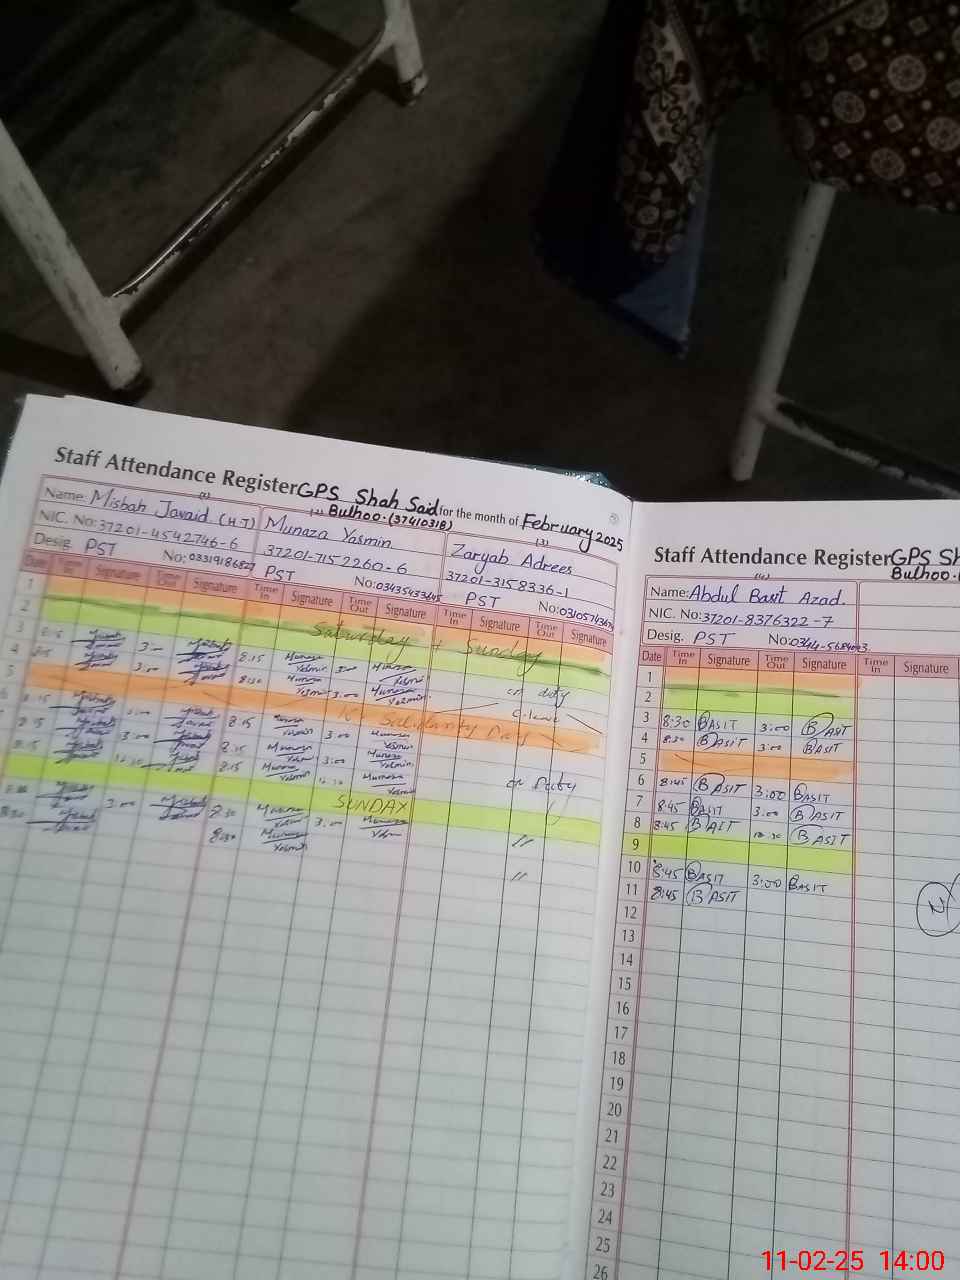 Staff Attendance Register GPS Shah Said for the month of February 2025
Bulhoo. (37410318)
(1) (2) (3)
Name: Misbah Javaid (H.T) Munaza Yasmin Zaryab Adrees
NIC. No: 37201-4542746-6 37201-7152260-6 37201-3158336-1
Desig. PST No: PST No: PST No:
Date Time In Signature Time Out Signature Time In Signature Time Out Signature Time In Signature Time Out Signature
1
2 Saturday + Sunday
3 8:15 3:00 8:15 Munaza Yasmin 3:00 Munaza Yasmin on duty
4 8:15 3:00 8:30 Munaza Yasmin 3:00 Munaza Yasmin C-leave
5 Solidarity Day
6 8:15 8:15 Munaza Yasmin 3:00 Munaza Yasmin
7 8:15 3:00 8:15 Munaza Yasmin 3:00 Munaza Yasmin
8:15 12:30 8:15 Munaza Yasmin 12:30 Munaza Yasmin on Duty
SUNDAY
3:00 8:30 Munaza Yasmin 3:00 Munaza Yasmin "
8:30 8:30 Munaza Yasmin "
Staff Attendance Register GPS Sh
Bulhoo.
(4)
Name: Abdul Basit Azad.
NIC. No: 37201-8376322-7
Desig. PST No:
Date Time In Signature Time Out Signature Time In Signature
1
2
3 8:30 BASIT 3:00 BASIT
4 8:30 BASIT 3:00 BASIT
5
6 8:45 BASIT 3:00 BASIT
7 8:45 BASIT 3:00 BASIT
8 8:45 BASIT 12:30 BASIT
9
10 8:45 BASIT 3:00 BASIT
11 8:45 BASIT
12
13
14
15
16
17
18
19
20
21
22
23
24
25
26
11-02-25 14:00